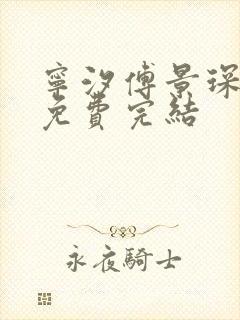 寧汐傅景琛
免費完結
永夜騎士